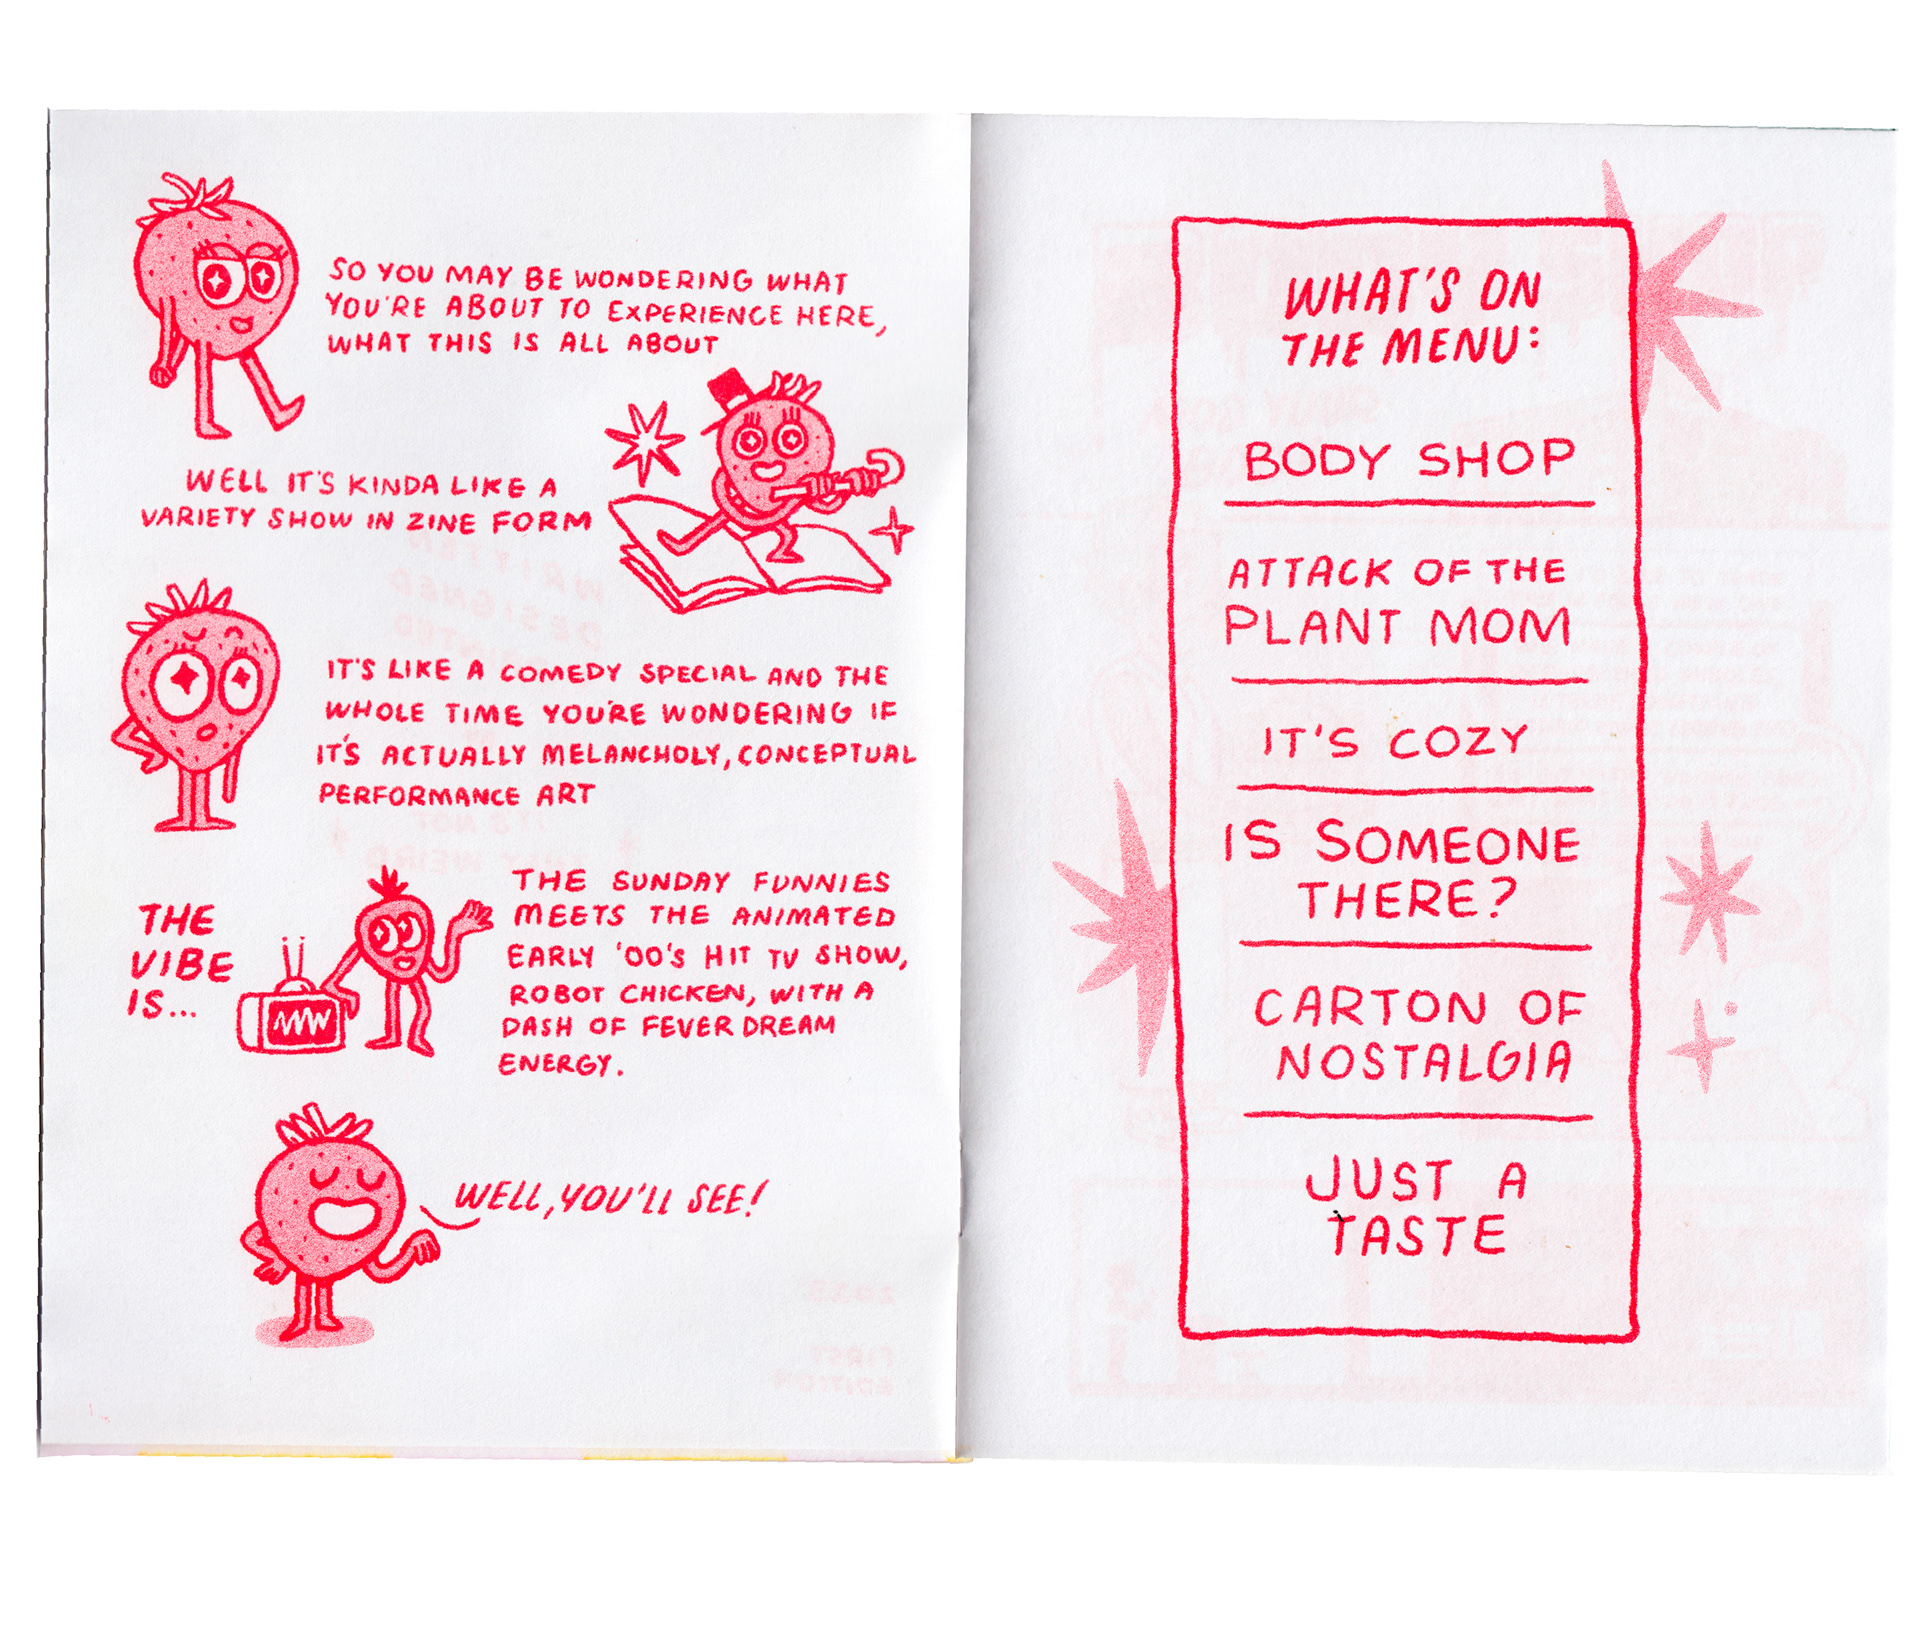 SO YOU MAY BE WONDERING WHAT
YOU'RE ABOUT TO EXPERIENCE HERE,
WHAT THIS IS ALL ABOUT
WELL IT'S KINDA LIKE A
VARIETY SHOW IN ZINE FORM
IT'S LIKE A COMEDY SPECIAL AND THE
WHOLE TIME YOU'RE WONDERING IF
IT'S ACTUALLY MELANCHOLY, CONCEPTUAL
PERFORMANCE ART
THE
VIBE
IS...
THE SUNDAY FUNNIES
MEETS THE ANIMATED
EARLY '00'S HIT TV SHOW,
ROBOT CHICKEN, WITH A
DASH OF FEVER DREAM
ENERGY.
WELL, YOU'LL SEE!
WHAT'S ON
THE MENU:
BODY SHOP
ATTACK OF THE
PLANT MOM
IT'S COZY
IS SOMEONE
THERE?
CARTON OF
NOSTALGIA
JUST A
TASTE